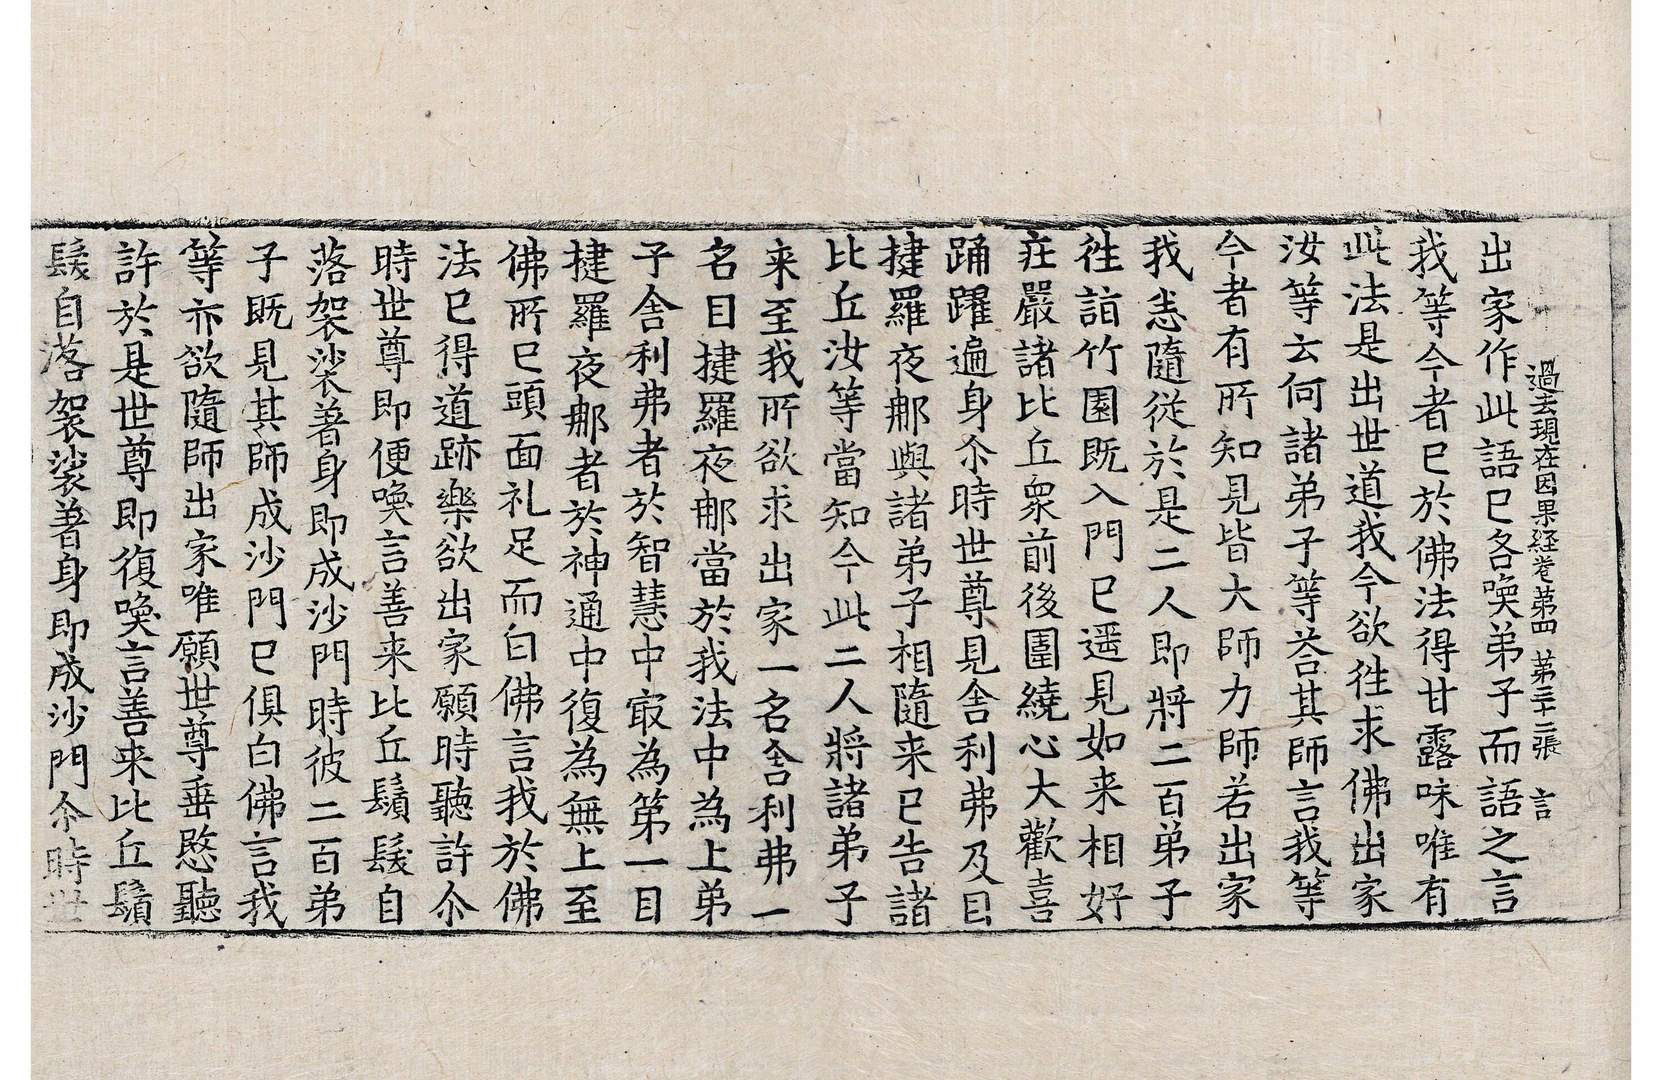 過去現在因果経巻第四 第三十二張 言
出家作此語已各喚弟子而語之言
我等今者已於佛法得甘露味唯有
此法是出世道我今欲徃求佛出家
汝等云何諸弟子等荅其師言我等
今者有所知見皆大師力師若出家
我悉隨從於是二人即將二百弟子
徃詣竹園既入門已遥見如来相好
莊嚴諸比丘衆前後圍繞心大歡喜
踊躍遍身尒時世尊見舍利弗及目
揵羅夜那與諸弟子相隨来已告諸
比丘汝等當知今此二人將諸弟子
来至我所欲求出家一名舍利弗一
名目揵羅夜那當於我法中為上弟
子舍利弗者於智慧中㝡為第一目
揵羅夜那者於神通中復為無上至
佛所已頭面礼足而白佛言我於佛
法已得道跡樂欲出家願時聽許尒
時世尊即便喚言善来比丘鬚髮自
落袈裟著身即成沙門時彼二百弟
子既見其師成沙門已俱白佛言我
等亦欲隨師出家唯願世尊垂愍聽
許於是世尊即復喚言善来比丘鬚
髮自落袈裟著身即成沙門尒時世